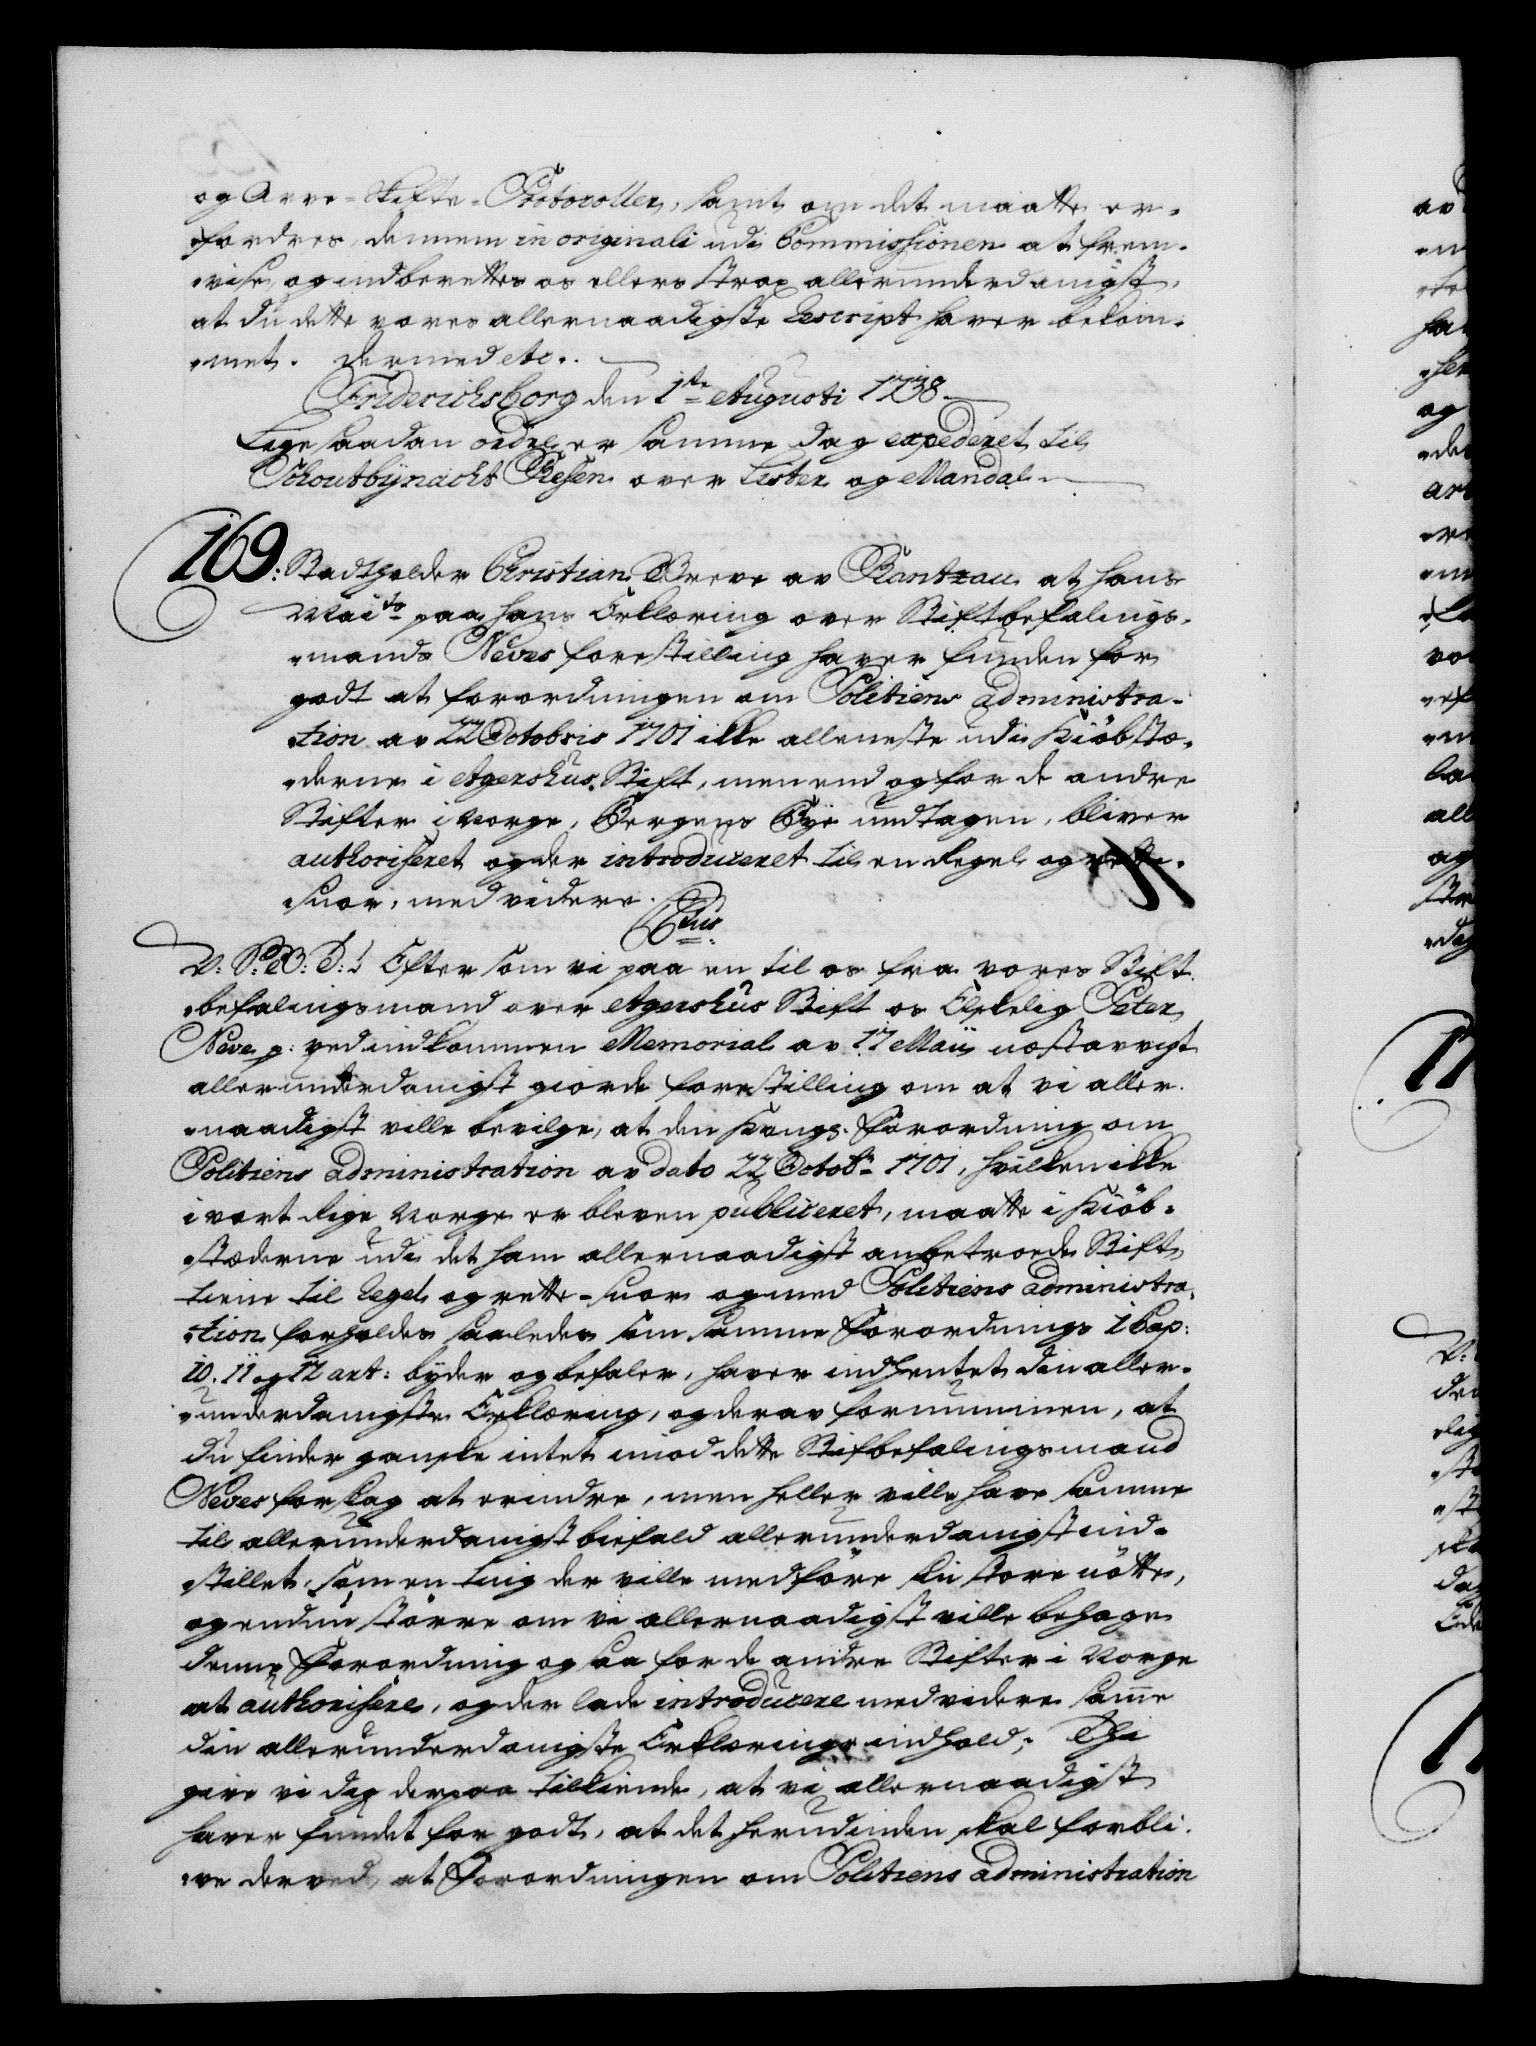 og Arve-Skifte-Protocoller, samt om det maatte er-
fordres, dennem in originali udi Commissionen at frem-
vise, og indberette os ellers strax allerunderdanigst,
at du dette vores allernaadigste Rescript haver bekom-
met. Dermed etc.
Friderichsborg den 1te Augusti 1738.
Lige saadan ordre er samme dag expederet til
Schoutbÿnacht Riesen over Lister og Mandal.
169: Stadtholder Christian Greve av Rantzau at hans
Maits paa hans Erklæring over Stiftbefalings-
mands Neves forestilling haver funden for
godt at forordningen om Politiens administra-
tion av 22 Octobris 1701 ikke alleneste udi Kiöbstæ-
derne i Agershus Stift, men end og for de andre
Stifter i Norge, Bergens Bÿe undtagen, bliver
authoriseret og der introduceret til en Regel og rette-
snor, med videre.
C6tus
V: S: G: B: T: Efter som vi paa en til os fra vores Stift-
befalingsmand over Agershus Stift os Elskelig Peter
Neve p: ved indkommen Memorial av 17 Maii næstavvigt
allerunderdanigst giorde forestilling om at vi aller-
naadigst ville bevilge, at den Kongs. Forordning om
Politiens administration av dato 22 Octobr 1701, hvilken ikke
i vort Rige Norge er bleven publiceret, maatte i Kiöb-
stæderne udi det ham allernaadigst anbetroede Stift
tiene til Regel og rette-snor og med Politiens administra-
tion forholdes saaledes som samme Forordnings 1 Cap:
10. 11 og 12 art: byder og befaler, haver indhentet din aller-
underdanigste Erklæring, og derav fornummen, at
du finder ganske intet imod dette Stifbefalingsmand
Neves forslag at erindre, men heller ville have samme
til allerunderdanigst biefald allerunderdanigst ind-
stillet, som en ting der ville medföre sin store nötte,
og endnu större om vi allernaadigst ville behage
denne Forordning og saa for de andre Stifter i Norge
at authorisere, og der lade introducere med videre samme
din allerunderdanigste Erklærings indhold; Thi
give vi dig derpaa tilkiende, at vi allernaadigst
haver fundet for godt, at det herudinden skal forbli-
ve derved, at Forordningen om Politiens administration